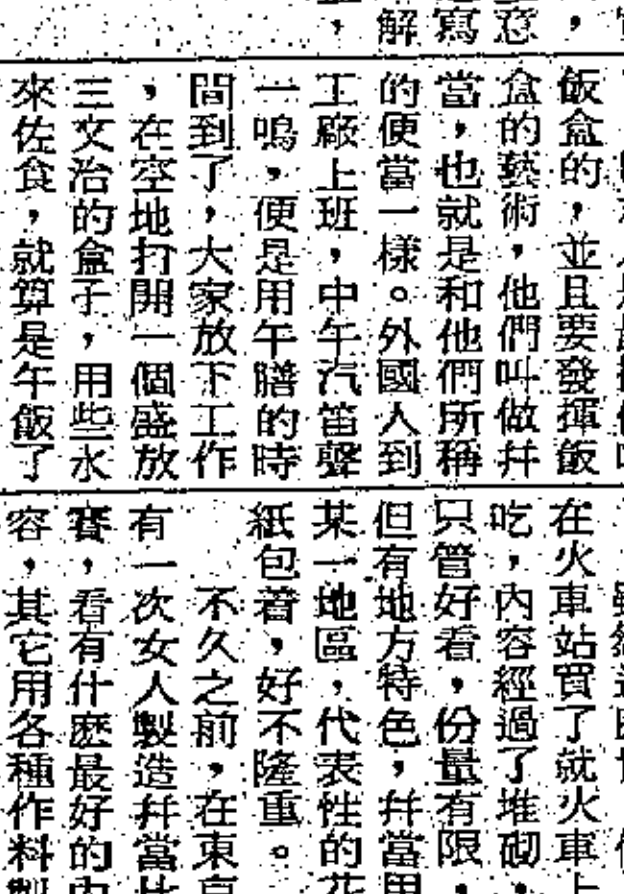 意
寫
解
飯盒的，並且要發揮飯
盒的藝術，他們叫做幷
當，也就是和他們所稱
的便當一樣。外國人到
工廠上班，中午汽笛聲
一鳴，便是用午膳的時
間到了，大家放下工作
，在空地打開一個盛放
三文治的盒子，用些水
來佐食，就算是午飯了
在火車站買了就火車上
吃，內容經過了堆砌，
只管好看，份量有限，
但有地方特色，幷當用
某一地區，代表性的花
紙包着，好不隆重。
不久之前，在東京
有一次女人製造幷當比
賽，看有什麽最好的內
容，其它用各種作料製